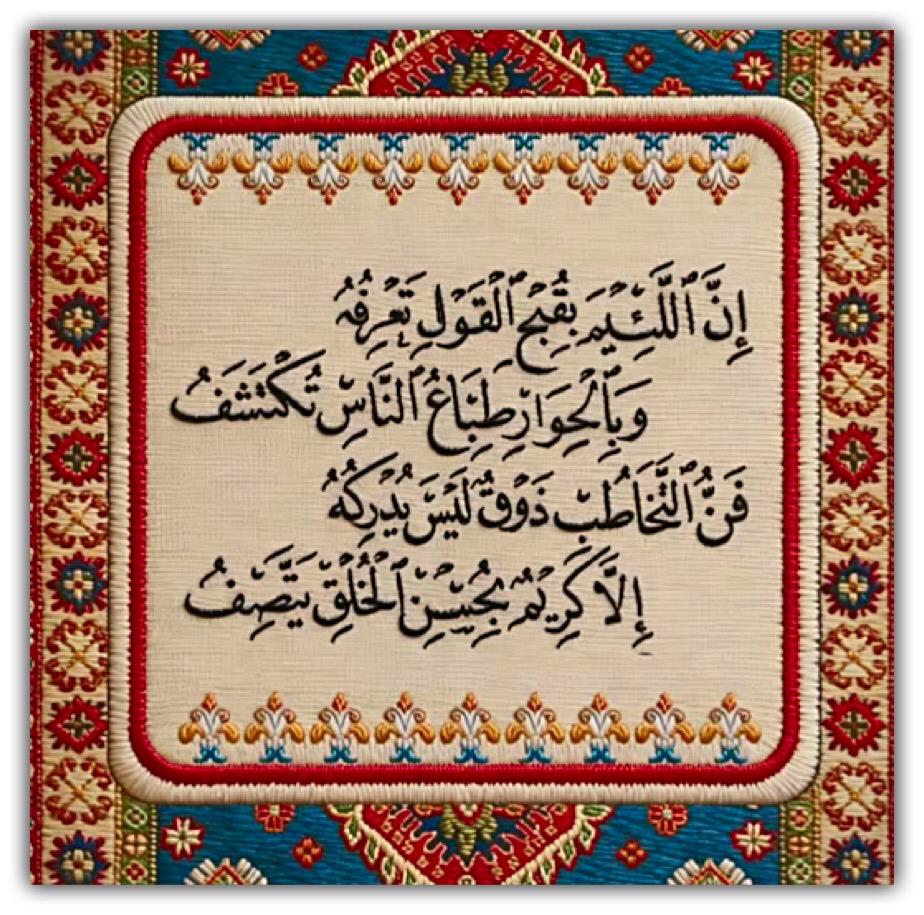 إِنَّ ٱللَّئِيمَ بِقُبْحِ ٱلْقَوْلِ تَعْرِفُهُ
وَبِٱلْحِوَارِ طِبَاعُ ٱلنَّاسِ تُكْتَشَفُ
فَنُّ ٱلتَّخَاطُبِ ذَوْقٌ لَيْسَ يُدْرِكُهُ
إِلَّا كَرِيمٌ بِحُسْنِ ٱلْخُلْقِ يَتَّصِفُ